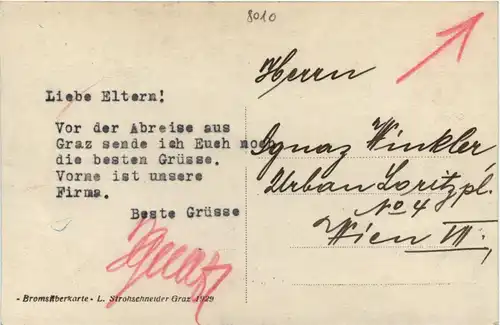 8010
Liebe Eltern!
Vor der Abreise aus
Graz sende ich Euch noch
die besten Grüsse.
Vorne ist unsere
Firma.
Beste Grüsse
Ignaz
Herrn
Ignaz Winkler,
Urban Loritzpl.
No 4
Wien VII.
- Bromsilberkarte - L. Strohschneider Graz 1929